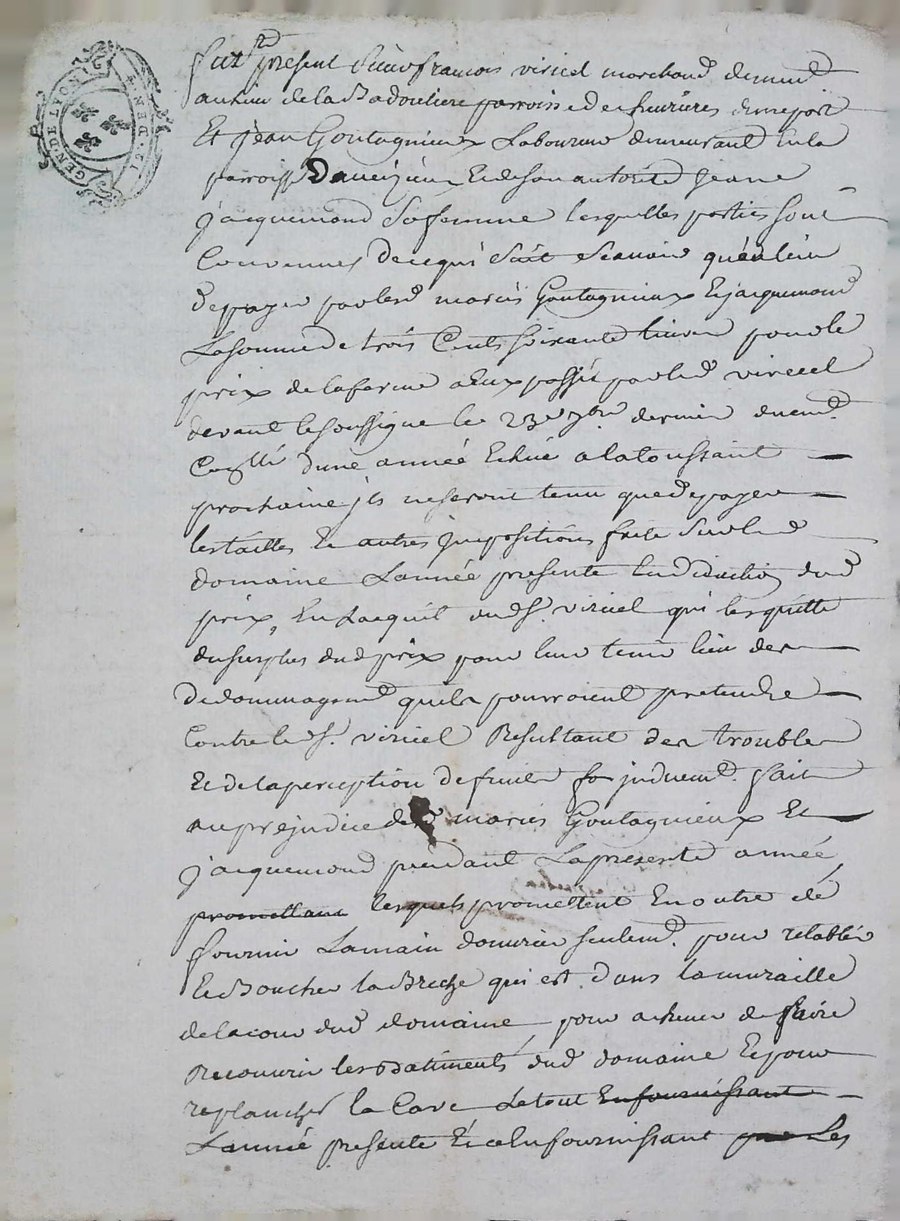 GEN. DE LYON
12. DEN. 4
Fut present Sieur françois viricel marchand demeurt
au lieu de la Badouliere parroisse de
Et jean Goutagnieux Laboureur demeurant En la
parroisse Daveizieu Et de son autorité jeane
jacquemond Sa femme lesquelles parties Sont
Convenues de ce qui Suit Scavoir qu'au lieu
de payer par lesd mariés Goutagnieux Et jacquemond
La Somme de trois Cents Soixante livres pour le
prix de la ferme a Eux passée par led viricel
devant le Soussigné le 23e 7bre dernier duem.t
Con.llé d'une année Echue a la toussaint
prochaine jls ne seront tenu que de payer
les tailles Et autres jmpositions faite Sur led
domaine L'année presente En diduction dud
prix, En l'acquit dud S.r viricel qui les quitte
du surplus dud prix pour leur tenir lieu des
dedommagemt quils pourroient pretendre
Contre led S.r viricel Resultant des troubles
Et de la perception de fruits jnduem.t fait
au prejudice desd mariés Goutagnieux Et
jacquemond pendant La presente année,
promettans lesquels promettent En outre de
fournir La main d'ouvrier seulem.t pour retablir
Et Boucher la Breche qui est dans la muraille
de la cour dud domaine pour achever de faire
Recouvrir les Batiments dud domaine Et pour
replancher la Cave le tout En fournissant
L'année presente Et ce En fournissant par Les